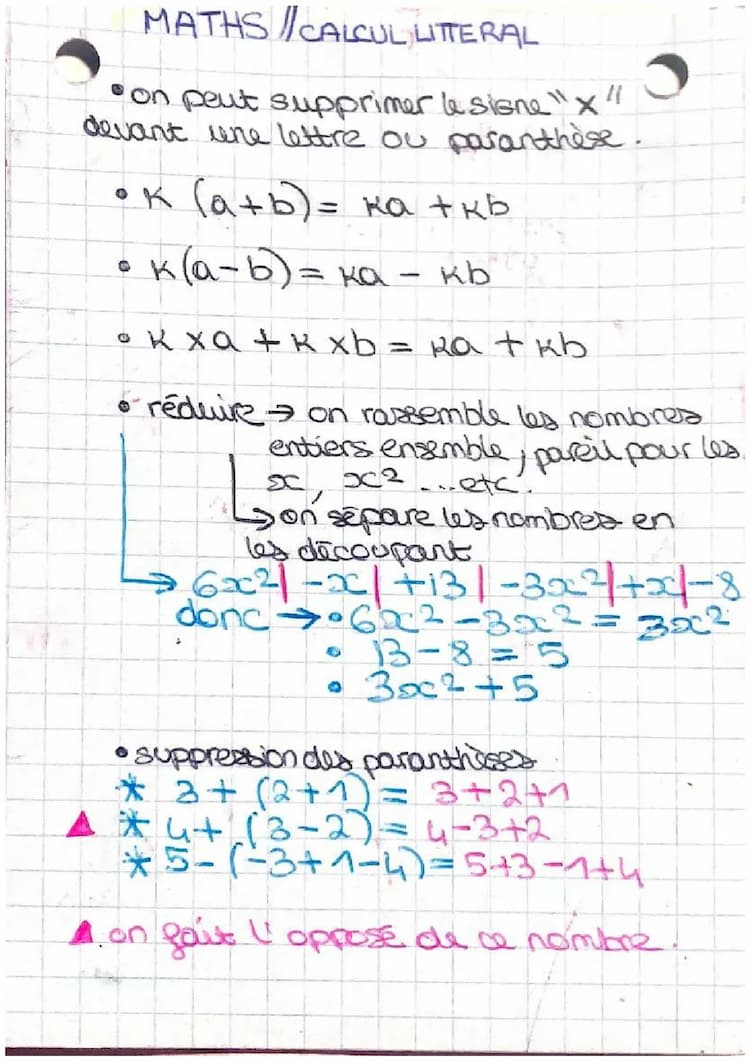 MATHS // CALCUL LITTERAL
• on peut supprimer le signe "x"
devant une lettre ou paranthèse.
• K (a+b) = Ka + Kb
• K(a-b) = Ka - Kb
• K x a + K x b = Ka + Kb
• réduire → on rassemble les nombres
entiers ensemble, pareil pour les
x, x² ...etc.
↳ on sépare les nombres en
les découpant
↳ 6x²| -x| +13| -3x²|+x|-8
donc → • 6x² - 3x² = 3x²
• 13 - 8 = 5
• 3x² + 5
• suppression des paranthèses
* 3 + (2+1) = 3+2+1
▲ * 4 + (3-2) = 4-3+2
* 5 - (-3+1-4) = 5+3-1+4
▲ on fait l'opposé de ce nombre.